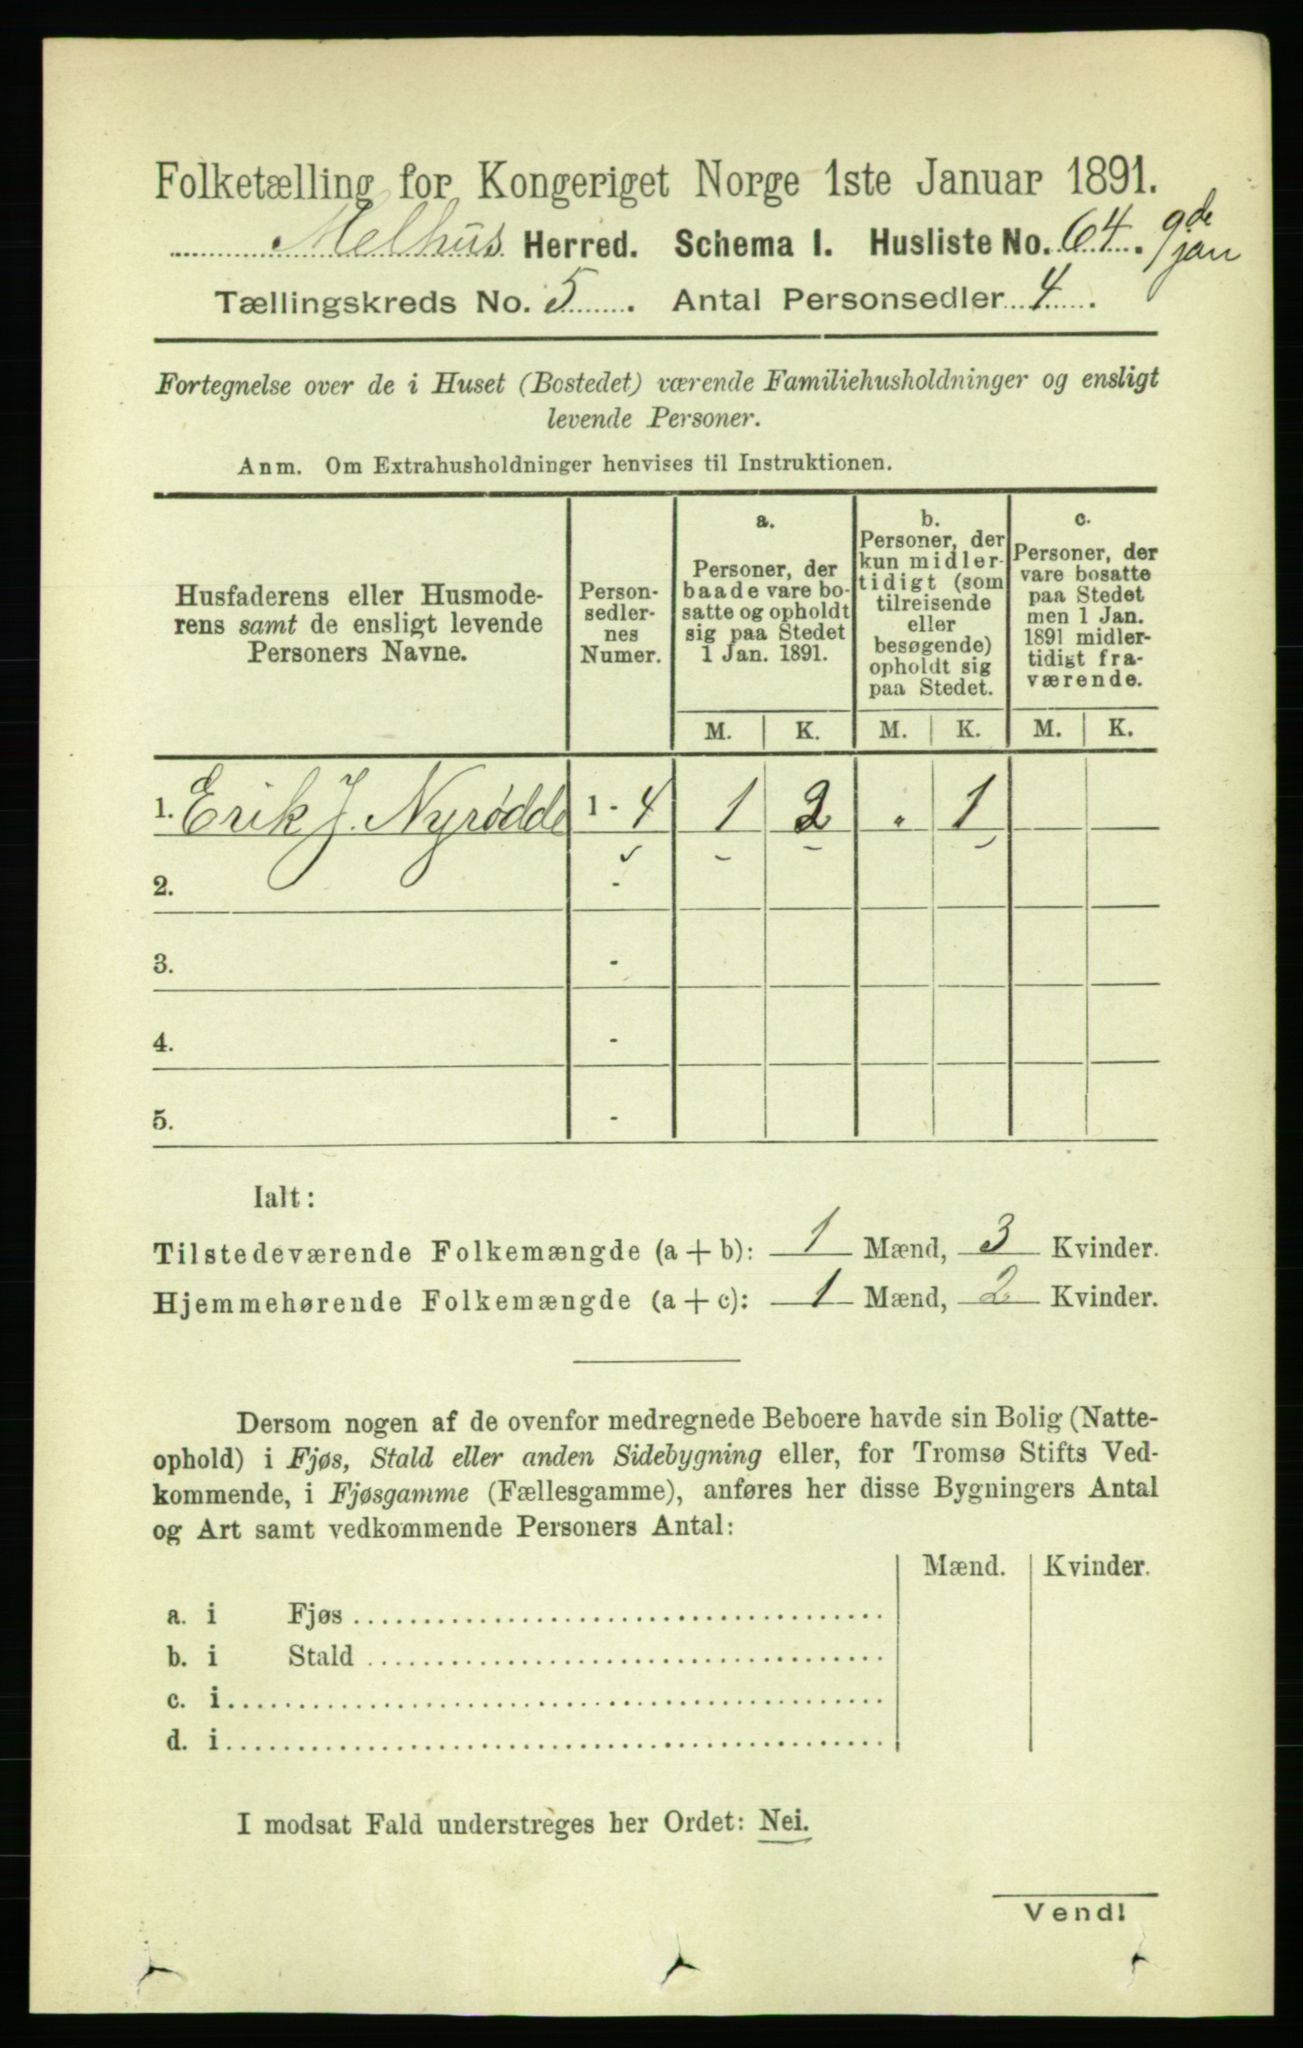 Folketælling for Kongeriget Norge 1ste Januar 1891.
Melhus Herred. Schema I. Husliste No. 64. 9de jan
Tællingskreds No. 5. Antal Personsedler 4.
Fortegnelse over de i Huset (Bostedet) værende Familiehusholdninger og ensligt
levende Personer.
Anm. Om Extrahusholdninger henvises til Instruktionen.
Husfaderens eller Husmode-
rens samt de ensligt levende
Personers Navne.
Person-
sedler-
nes
Numer.
a.
Personer, der
baade vare bo-
satte og opholdt
sig paa Stedet
1 Jan. 1891.
b.
Personer, der
kun midler-
tidigt (som
tilreisende
eller
besøgende)
opholdt sig
paa Stedet.
c.
Personer, der
vare bosatte
paa Stedet
men 1 Jan.
1891 midler-
tidigt fra-
værende.
M. K. M. K. M. K.
1. Erik J. Nyrødde 1 - 4 1 2 . 1
2. -
3. -
4. -
5. -
Ialt:
Tilstedeværende Folkemængde (a + b): 1 Mænd, 3 Kvinder.
Hjemmehørende Folkemængde (a + c): 1 Mænd, 2 Kvinder.
Dersom nogen af de ovenfor medregnede Beboere havde sin Bolig (Natte-
ophold) i Fjøs, Stald eller anden Sidebygning eller, for Tromsø Stifts Ved-
kommende, i Fjøsgamme (Fællesgamme), anføres her disse Bygningers Antal
og Art samt vedkommende Personers Antal:
Mænd. Kvinder.
a. i Fjøs
b. i Stald
c. i
d. i
I modsat Fald understreges her Ordet: Nei.
Vend!